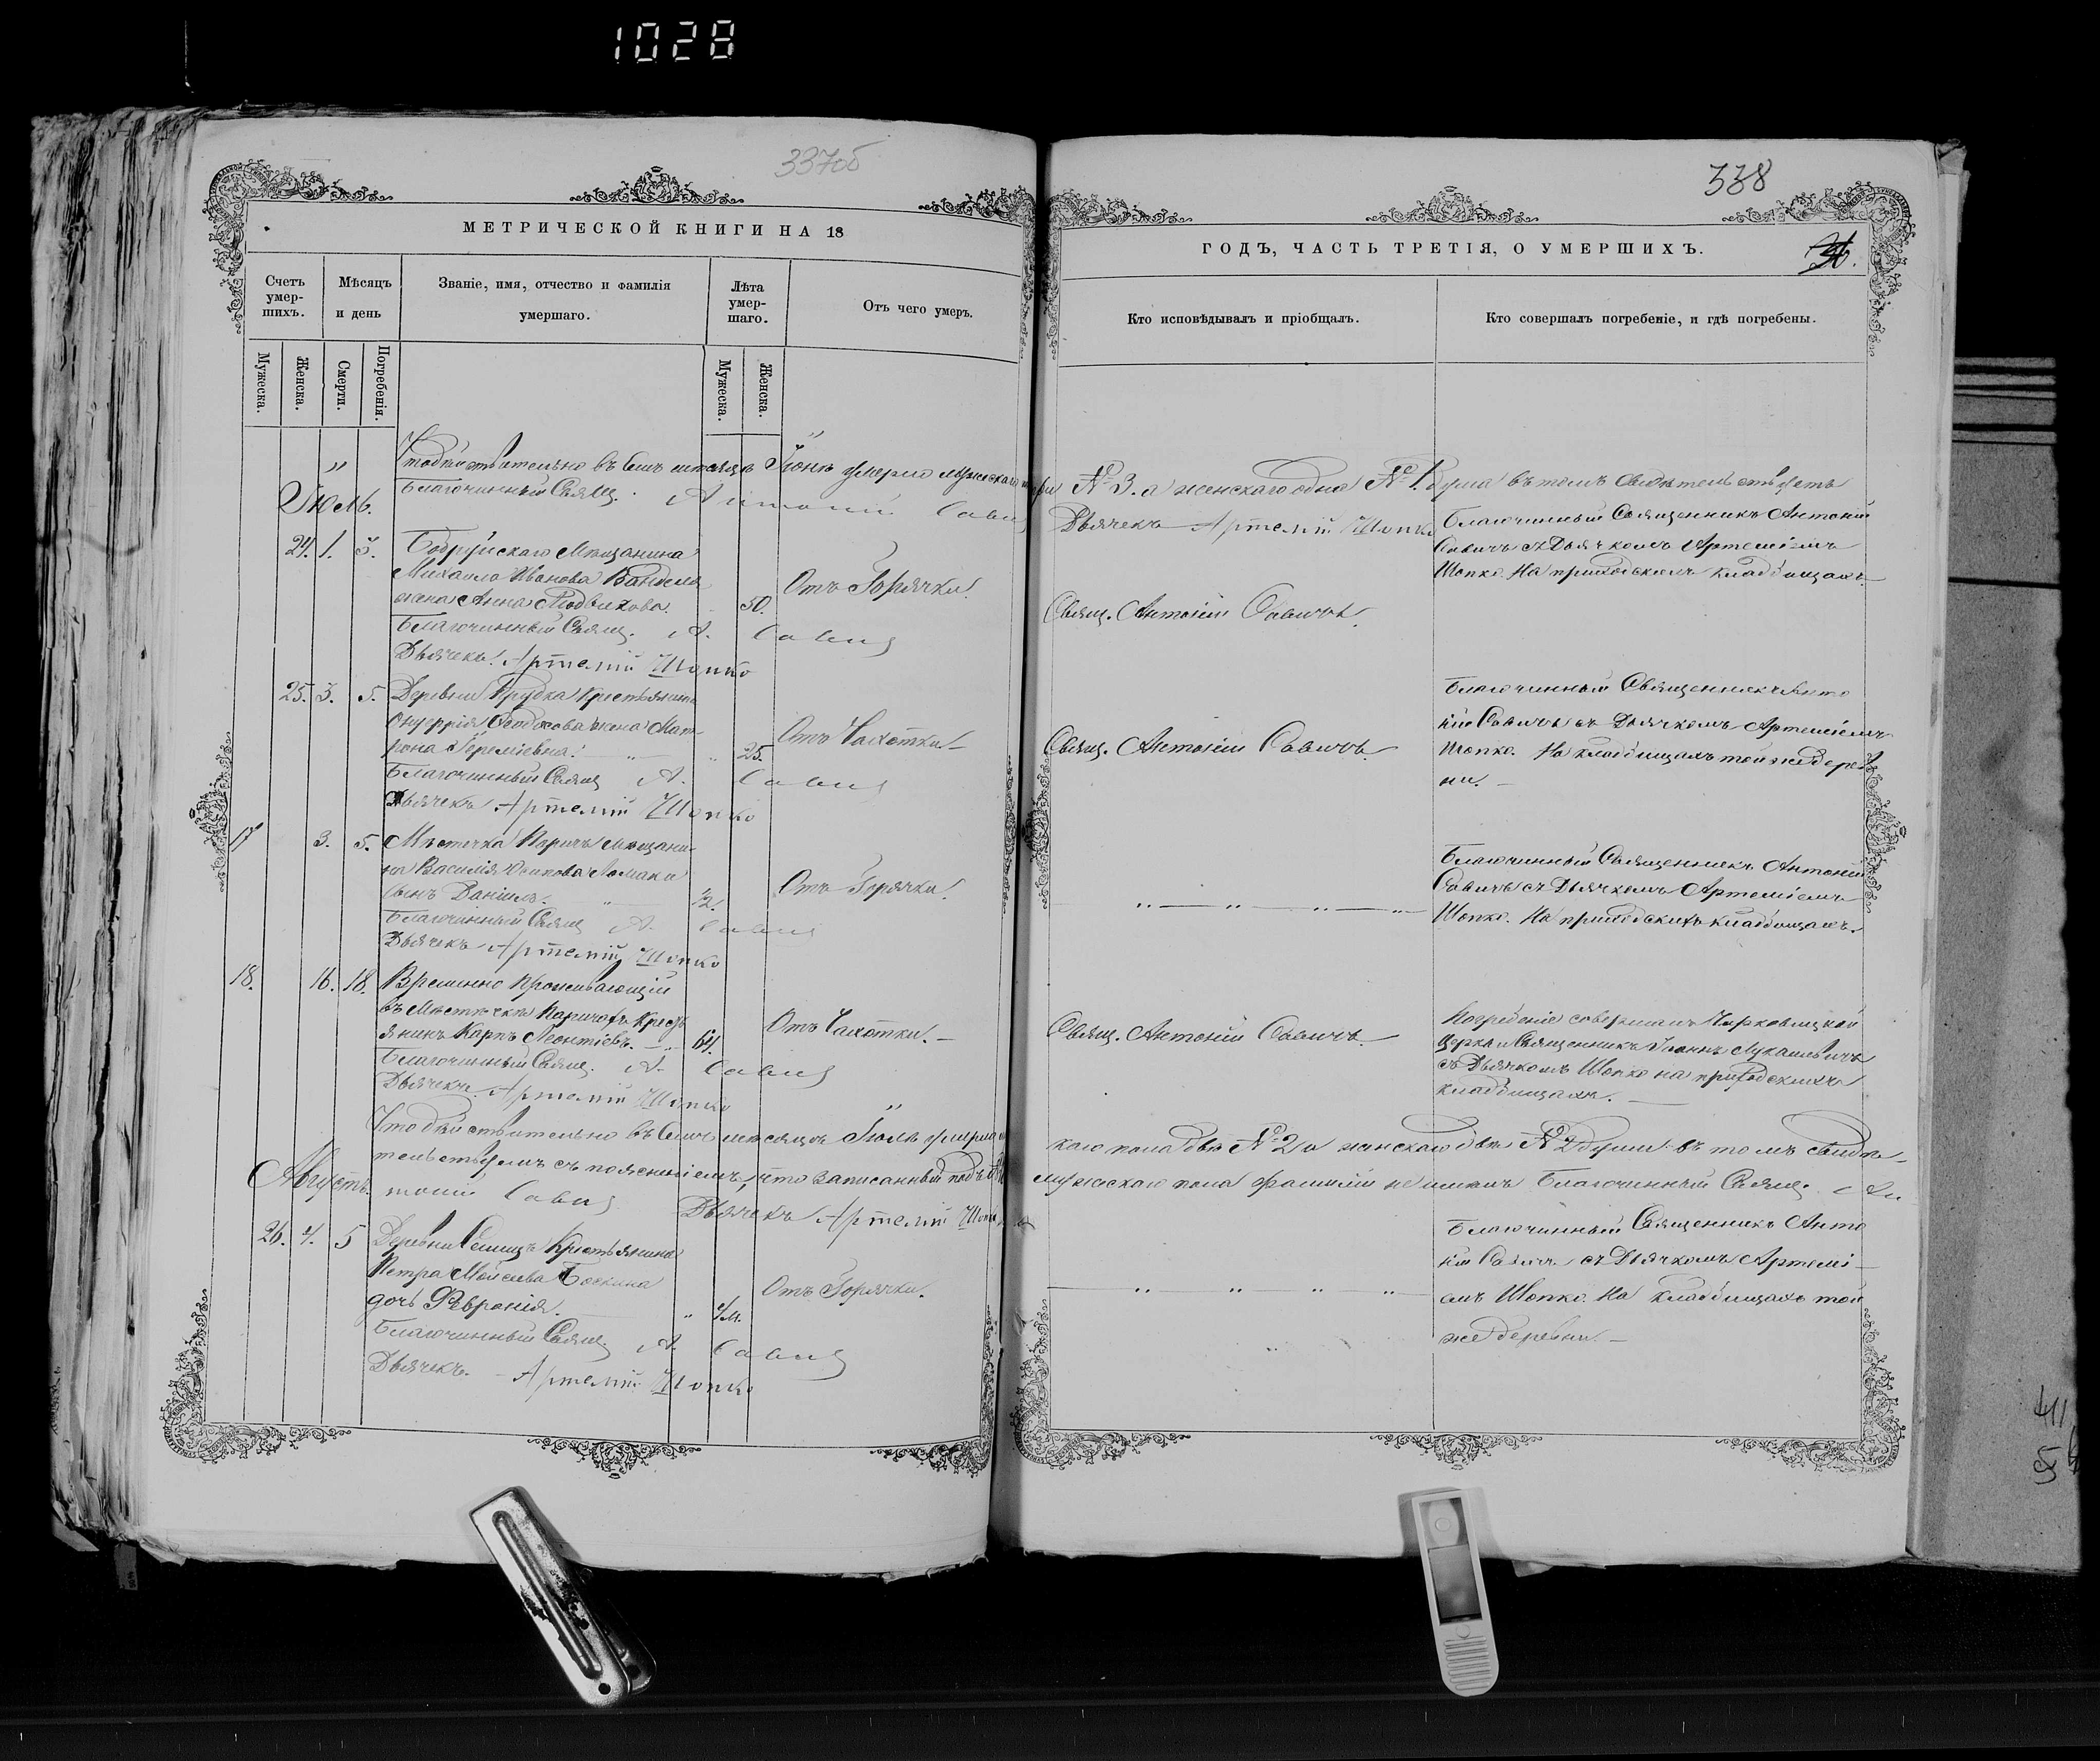 1028
337об
МЕТРИЧЕСКОЙ КНИГИ НА 18
Счетъ умер-шихъ.
Мѣсяцъ и день
Званіе, имя, отчество и фамилія умершаго.
Лѣта умер-шаго.
Отъ чего умеръ.
Мужеска.
Женска.
Смерти.
Погребенія.
Мужеска.
Женска.
Что дѣйствительно въ семъ мѣсяцѣ Іюнѣ умерло мужескаго
Благочинный Свящ. Антоній Савич
Іюль.
24. 1. 3. Бобруйскаго Мѣщанина
Михаила Иванова
жена Анна 50. Отъ Горячки.
Благочинный Свящ. А. Савич
Дьячекъ Артемій Шопко
25. 3. 5. Деревни Прудка Крестьянина
Онуфрія жена Мат-
рона Іереміевна. 25. Отъ Чахотки
Благочинный Свящ А. Савич
Дьячекъ Артемій Шопко
17 3. 5. Мѣстечка Паричъ мѣщани-
на Василія Осипова Ломаки
сынъ Даніилъ. 2. Отъ Горячки.
Благочинный Свящ А. Савич
Дьячекъ Артемій Шопко
18. 16. 18. Временно проживающій
въ Мѣстечкѣ Паричахъ Кресть
янинъ Карпъ Леонтіевъ. 64. Отъ Чахотки.
Благочинный Свящ. А. Савич
Дьячекъ Артемій Шопко
Что дѣйствительно въ семъ мѣсяцѣ Іюлѣ умерло
тельствуемъ съ поясненіемъ, что записанный подъ
Августъ. тоній Савич Дьячекъ Артемій Шопко
26. 4. 5 Деревни Крестьянина
Петра Моисеева
дочь Февронія. 4/м. Отъ Горячки.
Благочинный Свящ А. Савич
Дьячекъ. Артемій Шопко
338
ГОДЪ, ЧАСТЬ ТРЕТІЯ, О УМЕРШИХЪ.
36.
Кто исповѣдывалъ и пріобщалъ.
Кто совершалъ погребеніе, и гдѣ погребены.
№ 3. а женскаго одна № 1. душа въ томъ свидѣтельствуемъ
Дьячекъ Артемій Шопко
Благочинный Священникъ Антоній
Савичъ съ Дьячкомъ Артеміемъ
Шопко. На приходскомъ кладбищахъ
Свящ. Антоній Савичъ.
Благочинный Священникъ Анто
ній Савичъ съ Дьячкомъ Артеміемъ
Свящ. Антоній Савичъ. Шопко. На кладбищахъ той же дерев
ни.
Благочинный Священникъ Антоній
Савичъ съ Дьячкомъ Артеміемъ
Шопко. На приходскихъ кладбищахъ.
Погребеніе совершалъ Чирковицкой
Свящ. Антоній Савичъ. церкви Священникъ Іоаннъ Лукашевичъ
съ Дьячкомъ Шопко на приходскихъ
кладбищахъ.
каго пола два № 2 а женскаго двѣ № 2 души: въ томъ свидѣ-
мужескаго пола фамиліи не имѣлъ Благочинный Свящ. Ан.
Благочинный Священникъ Анто
ній Савичъ съ Дьячкомъ Артемі-
емъ Шопко. На кладбищахъ той
же деревни.